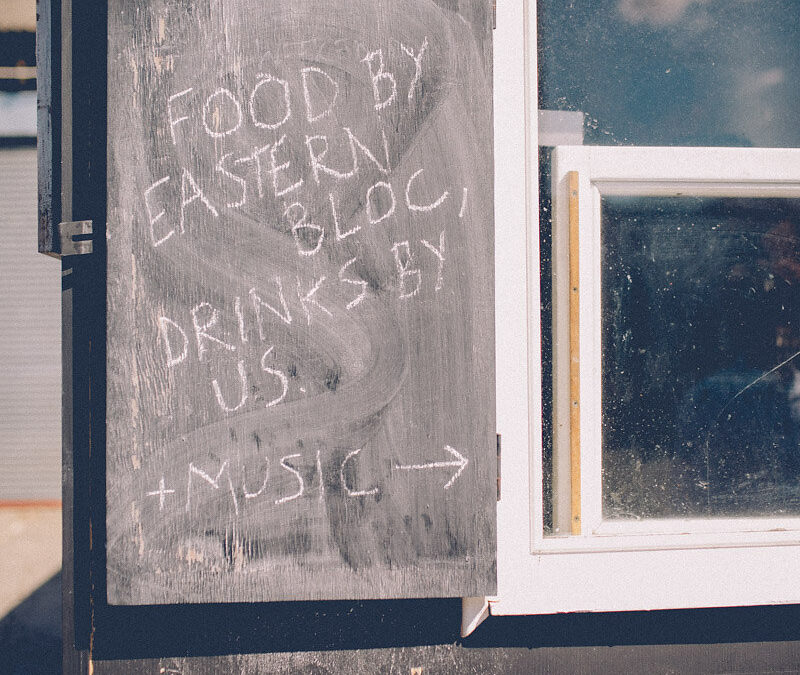 FOOD BY
EASTERN
BLOC,
DRINKS BY
US.
+MUSIC →